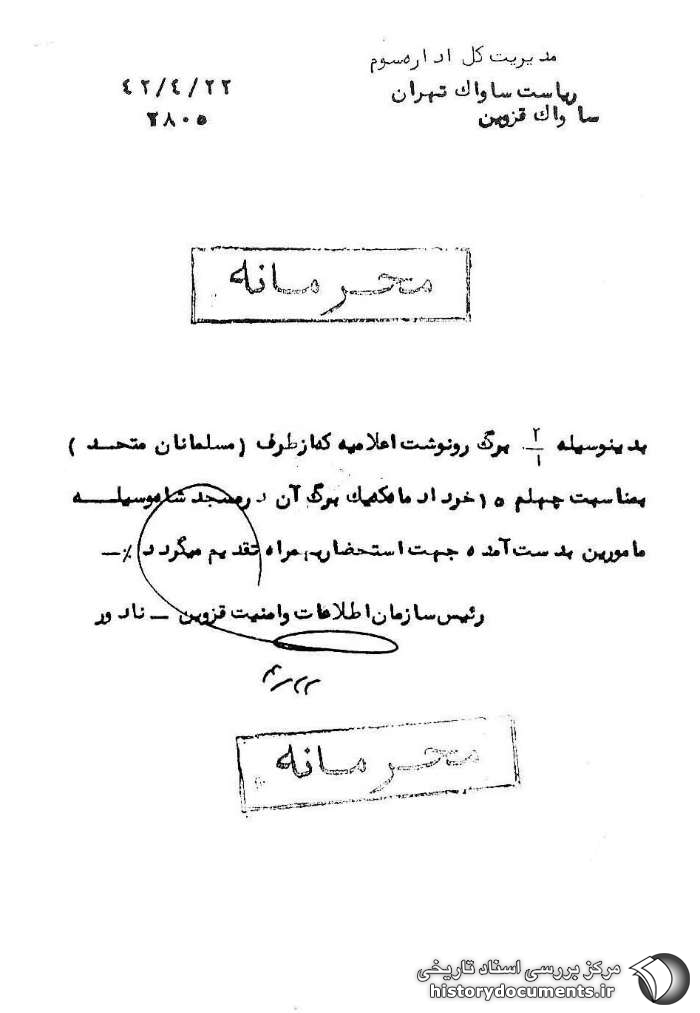 مدیریت کل اداره سوم
ریاست ساواک تهران
۴۲/۴/۲۲
ساواک قزوین
۲۸۰۵
محرمانه
بدینوسیله ۲/۱ برگ رونوشت اعلامیه که از طرف (مسلمانان متحد)
بمناسبت چهلم ۱۵ خرداد ماه که یک برگ آن در مسجد شاه وسیله
مامورین بدست آمده جهت استحضار بهمراه تقدیم میگردد ./ـ
رئیس سازمان اطلاعات و امنیت قزوین ـ نادور
۴/۲۲
محرمانه
مرکز بررسی اسناد تاریخی
historydocuments.ir